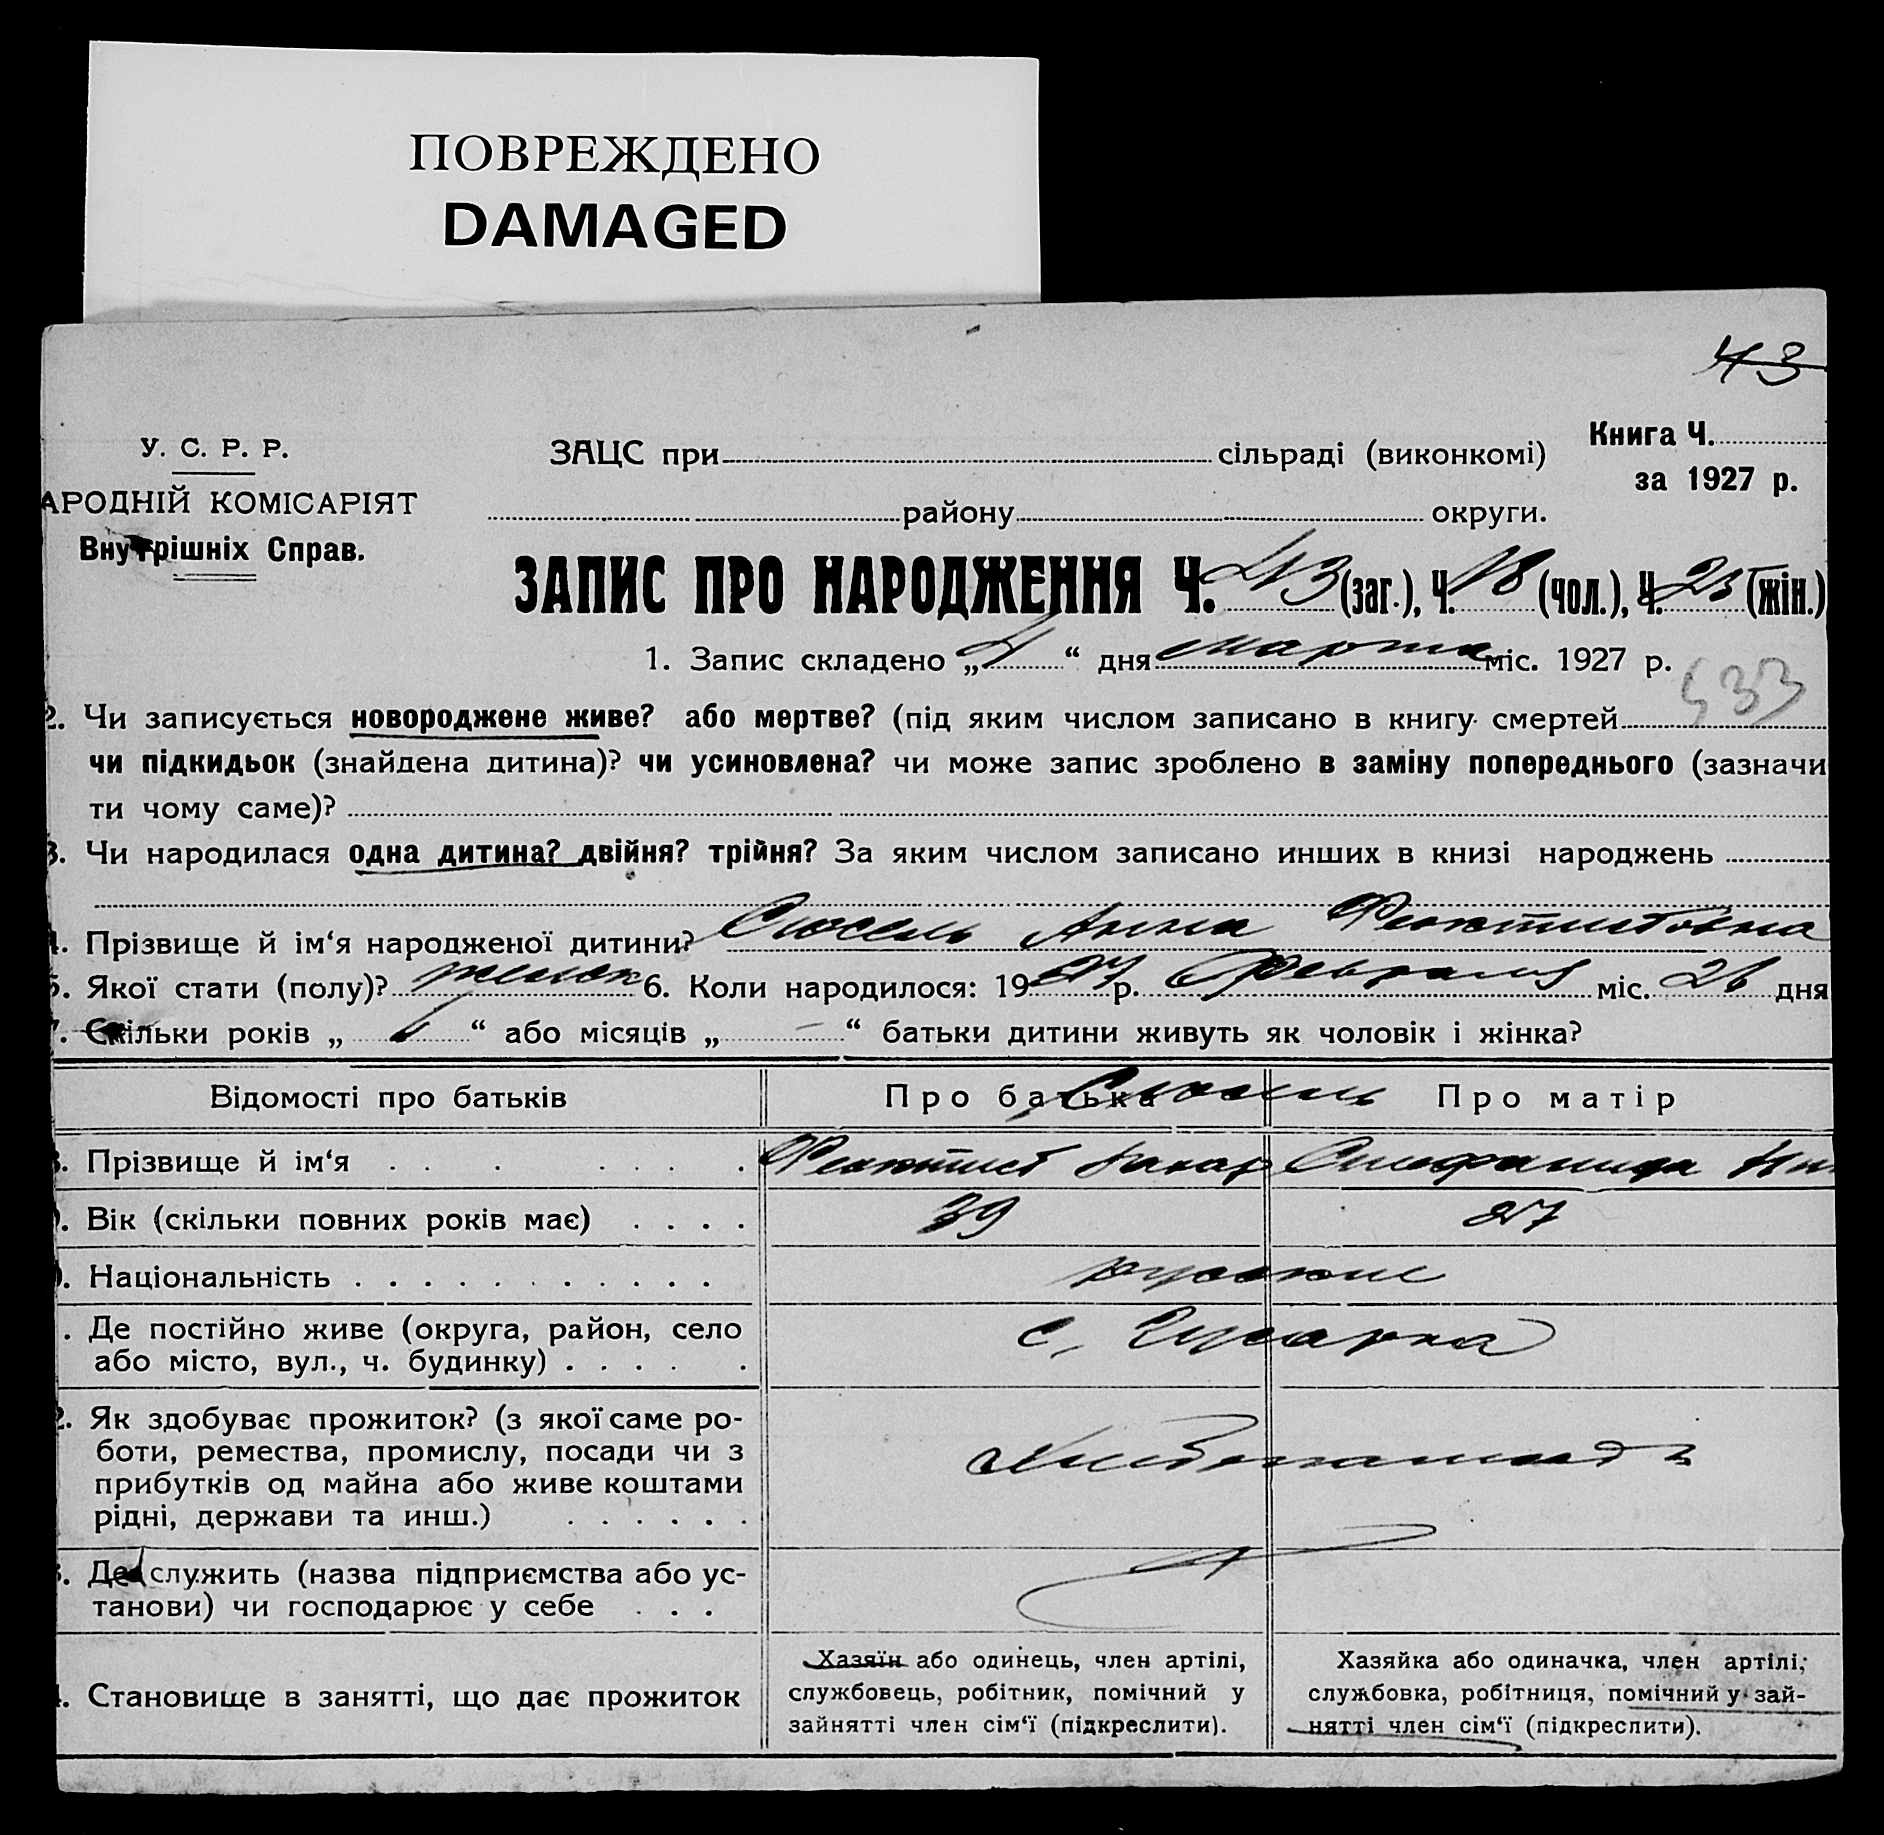 ПОВРЕЖДЕНО
DAMAGED
43
У. С. Р. Р.
АРОДНІЙ КОМІСАРІЯТ
Внутрішніх Справ.
ЗАЦС при сільраді (виконкомі)
району округи.
Книга Ч.
за 1927 р.
ЗАПИС ПРО НАРОДЖЕННЯ Ч. 43 (заг.), Ч. 18 (чол.), Ч. 25 (жін.)
1. Запис складено „ “ дня марта міс. 1927 р.
533
2. Чи записується новороджене живе? або мертве? (під яким числом записано в книгу смертей
чи підкидьок (знайдена дитина)? чи усиновлена? чи може запис зроблено в заміну попереднього (зазначи
ти чому саме)?
3. Чи народилася одна дитина? двійня? трійня? За яким числом записано инших в книзі народжень
4. Прізвище й ім‘я народженої дитини? Анна Феоктистовна
5. Якої стати (полу)? женск 6. Коли народилося: 1927 р. Февраля міс. 26 дня
7. Скільки років „ “ або місяців „ — “ батьки дитини живуть як чоловік і жінка?
Відомості про батьків Про батька Про матір
8. Прізвище й ім‘я Феоктист Захар Стефанида
9. Вік (скільки повних років має) 39 27
. Національність русские
. Де постійно живе (округа, район, село
або місто, вул., ч. будинку)
с. Гусарка
2. Як здобуває прожиток? (з якої саме ро-
боти, ремества, промислу, посади чи з
прибутків од майна або живе коштами
рідні, держави та инш.)
Хлебопашество
3. Де служить (назва підприємства або ус-
танови) чи господарює у себе
4. Становище в занятті, що дає прожиток
Хазяїн або одинець, член артілі,
службовець, робітник, помічний у
зайнятті член сім‘ї (підкреслити).
Хазяйка або одиначка, член артілі,
службовка, робітниця, помічний у зай-
нятті член сім‘ї (підкреслити).